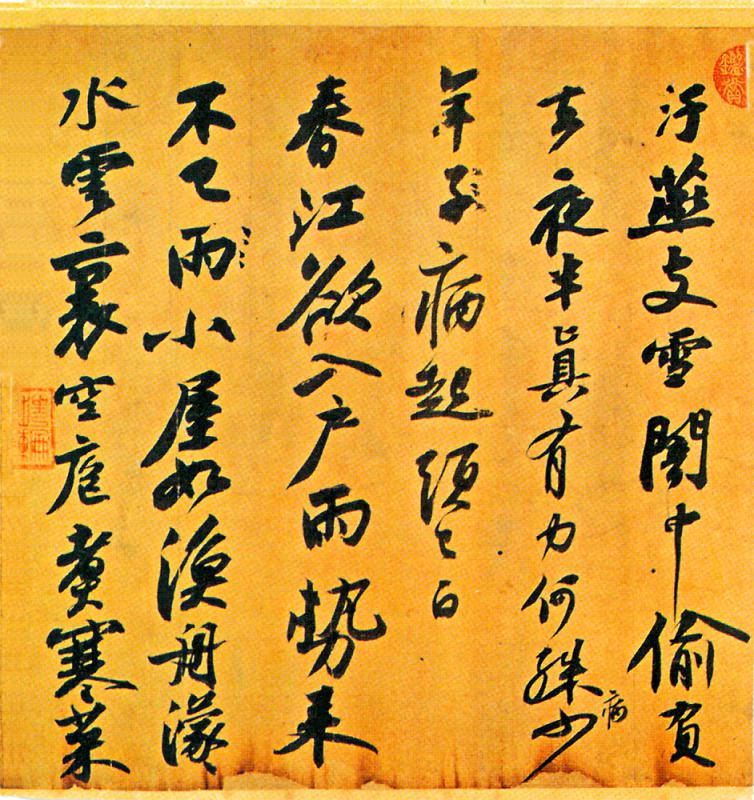 汙燕支雪闇中偷負
去夜半真有力何殊少
病
年子病起頭已白
春江欲入戶雨勢来
不已雨小屋如漁舟濛
水雲裏空庖煑寒菜